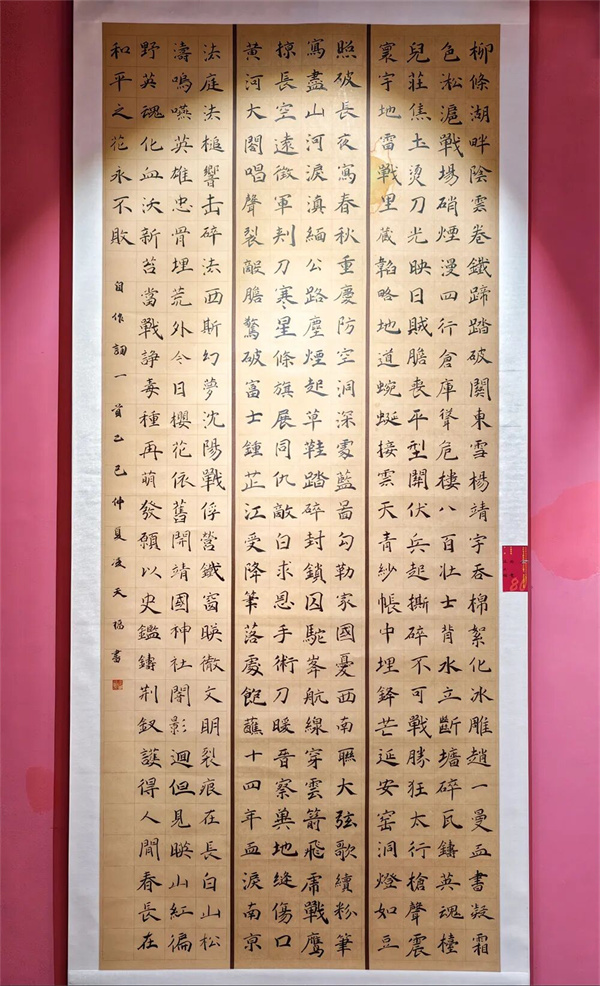 柳條湖畔陰雲卷鐵蹄踏破關東雪楊靖宇吞棉絮化冰雕趙一曼血書凝霜
色淞滬戰場硝煙漫四行倉庫聳危樓八百壯士背水立斷墻碎瓦鑄英魂檯
兒莊焦土燙刀光映日賊膽喪平型關伏兵起撕碎不可戰勝狂太行槍聲震
寰宇地雷戰里藏韜略地道蜿蜒接雲天青紗帳中埋鋒芒延安窑洞燈如豆
照破長夜寫春秋重慶防空洞深處藍圖勾勒家國憂西南聯大弦歌續粉筆
寫盡山河淚滇緬公路塵煙起草鞋踏碎封鎖囚駝峯航線穿雲箭飛虎戰鷹
掠長空遠徵軍刺刀寒星條旗展同仇敵白求恩手術刀暖晉察冀地縫傷口
黄河大閤唱聲裂敵膽驚破富士鍾芷江受降筆落處飽蘸十四年血淚南京
法庭法槌響击碎法西斯幻夢沈陽戰俘營鐵窗映徹文明裂痕在長白山松
濤鳴嚥英雄忠骨埋荒外今日櫻花依舊開靖國神社闇影迴但見映山紅徧
野英魂化血沃新苔當戰諍毒種再萌發願以史鑑鑄荆釵護得人間春長在
和平之花永不敗
自作詞一乙巳仲夏凌天書
80